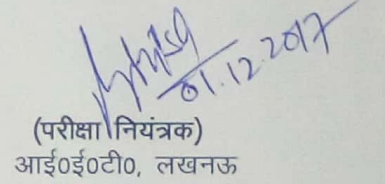 01.12.2017
(परीक्षा नियंत्रक)
आई०ई०टी०, लखनऊ